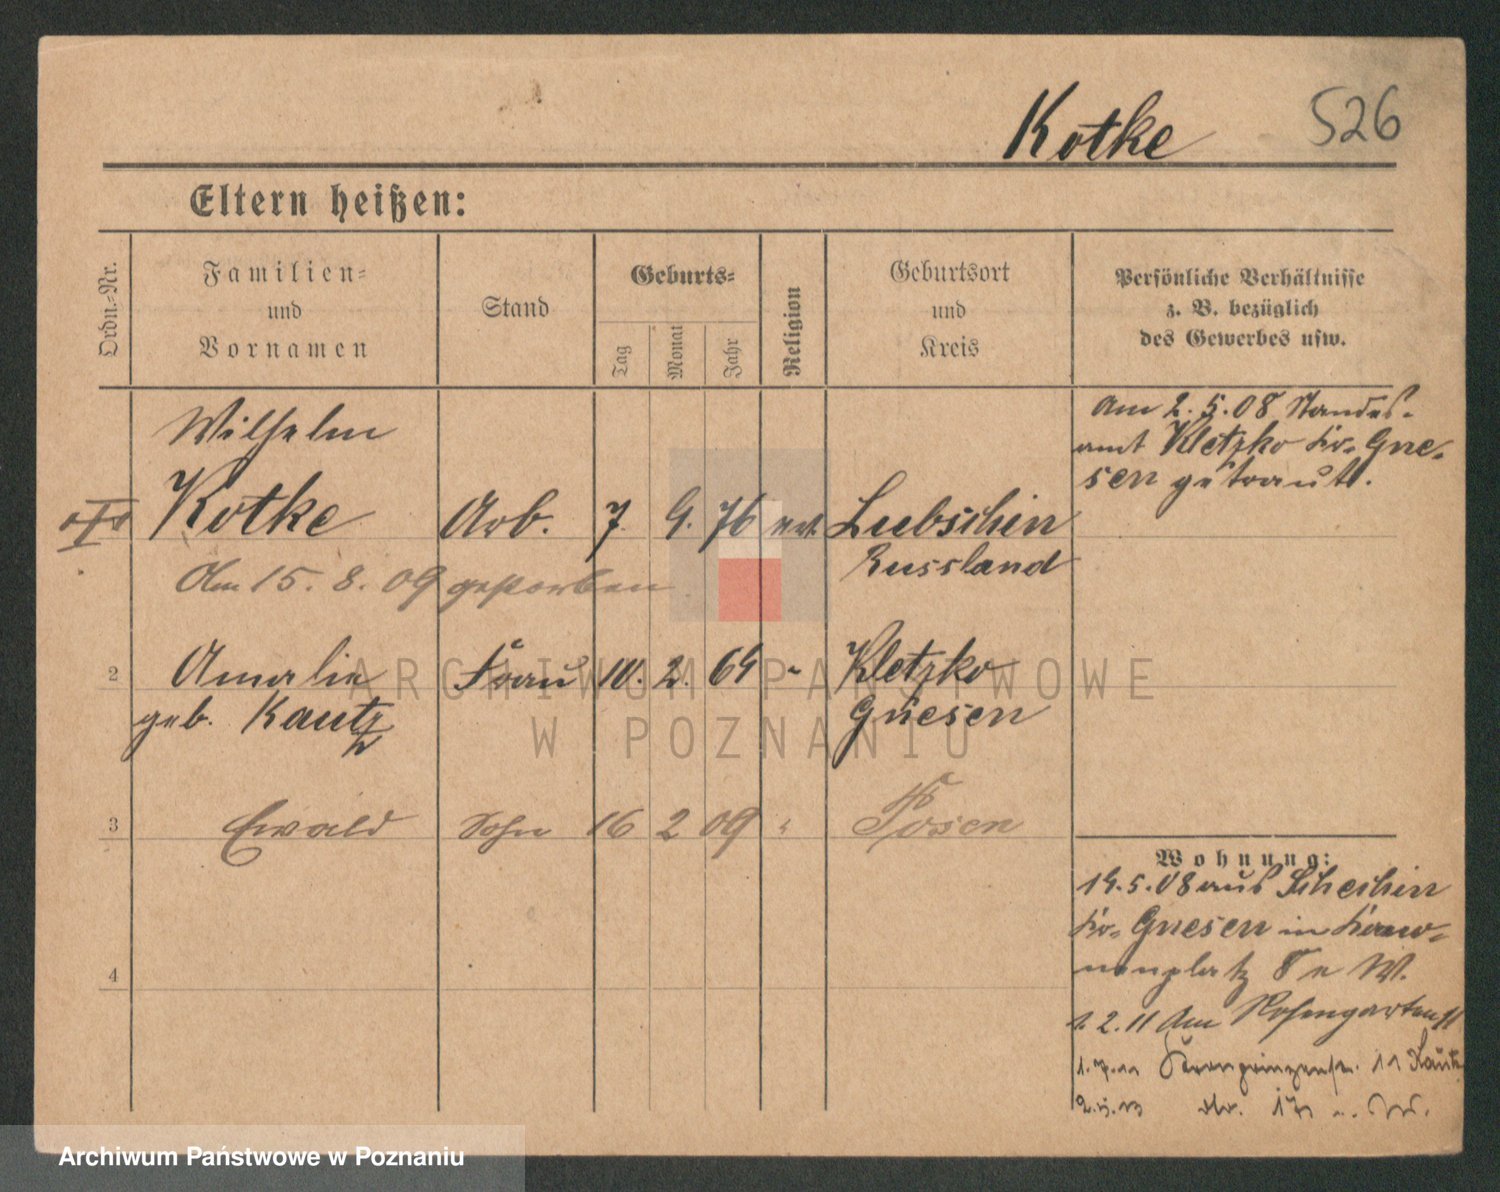 Kotke 526
Eltern heißen:
Ordn.-Nr.
Familien-
und
Vornamen
Stand
Geburts-
Tag
Monat
Jahr
Religion
Geburtsort
und
Kreis
Persönliche Verhältnisse
z. B. bezüglich
des Gewerbes usw.
Wilhelm
Kotke Arb. 7. 9. 76 ev. Lubschin
Russland
Am 15. 8. 09 gestorben
Am 2. 5. 08 Standes-
amt Kletzko Kr. Gne-
sen getraut.
2 Amalie Frau 10. 2. 64 " Kletzko
geb. Kautz Gnesen
3 Ewald Sohn 16 2 09 " Posen
4
Wohnung:
14.5.08 aus
Kr. Gnesen in
platz 8 W.
1. 2. 11 Am Rosengarten 11
1.7.11 Kronprinzenstr. 11
17
ARCHIWUM PAŃSTWOWE
W POZNANIU
Archiwum Państwowe w Poznaniu